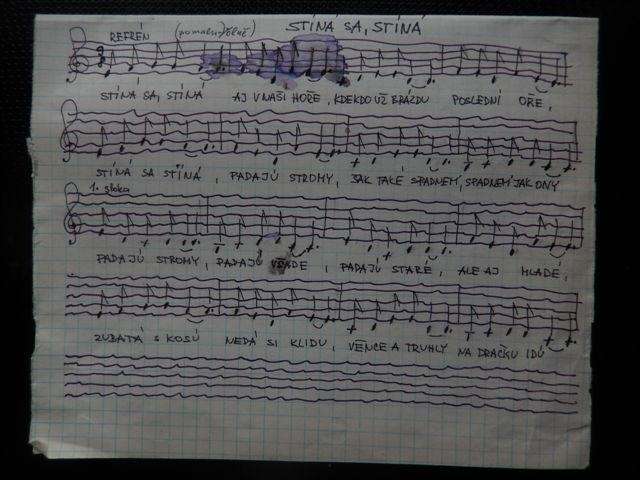 STÍNÁ SA, STÍNÁ
REFRÉN
STÍNÁ SA, STÍNÁ AJ V NAŠÍ HOŘE, KDEKDO UŽ BRÁZDU POSLEDNÍ OŘE,
STÍNÁ SA STÍNÁ, PADAJÚ STROMY, JAK TAKÉ SPADNEM, SPADNEM JAK ONY
1. sloka
PADAJÚ STROMY, PADAJÚ PADAJÚ STARÉ, ALE AJ MLADÉ,
ZUBATÁ S KOSÚ NEDÁ SI KLIDU, VĚNCE A TRUHLY NA DRAČKU IDÚ